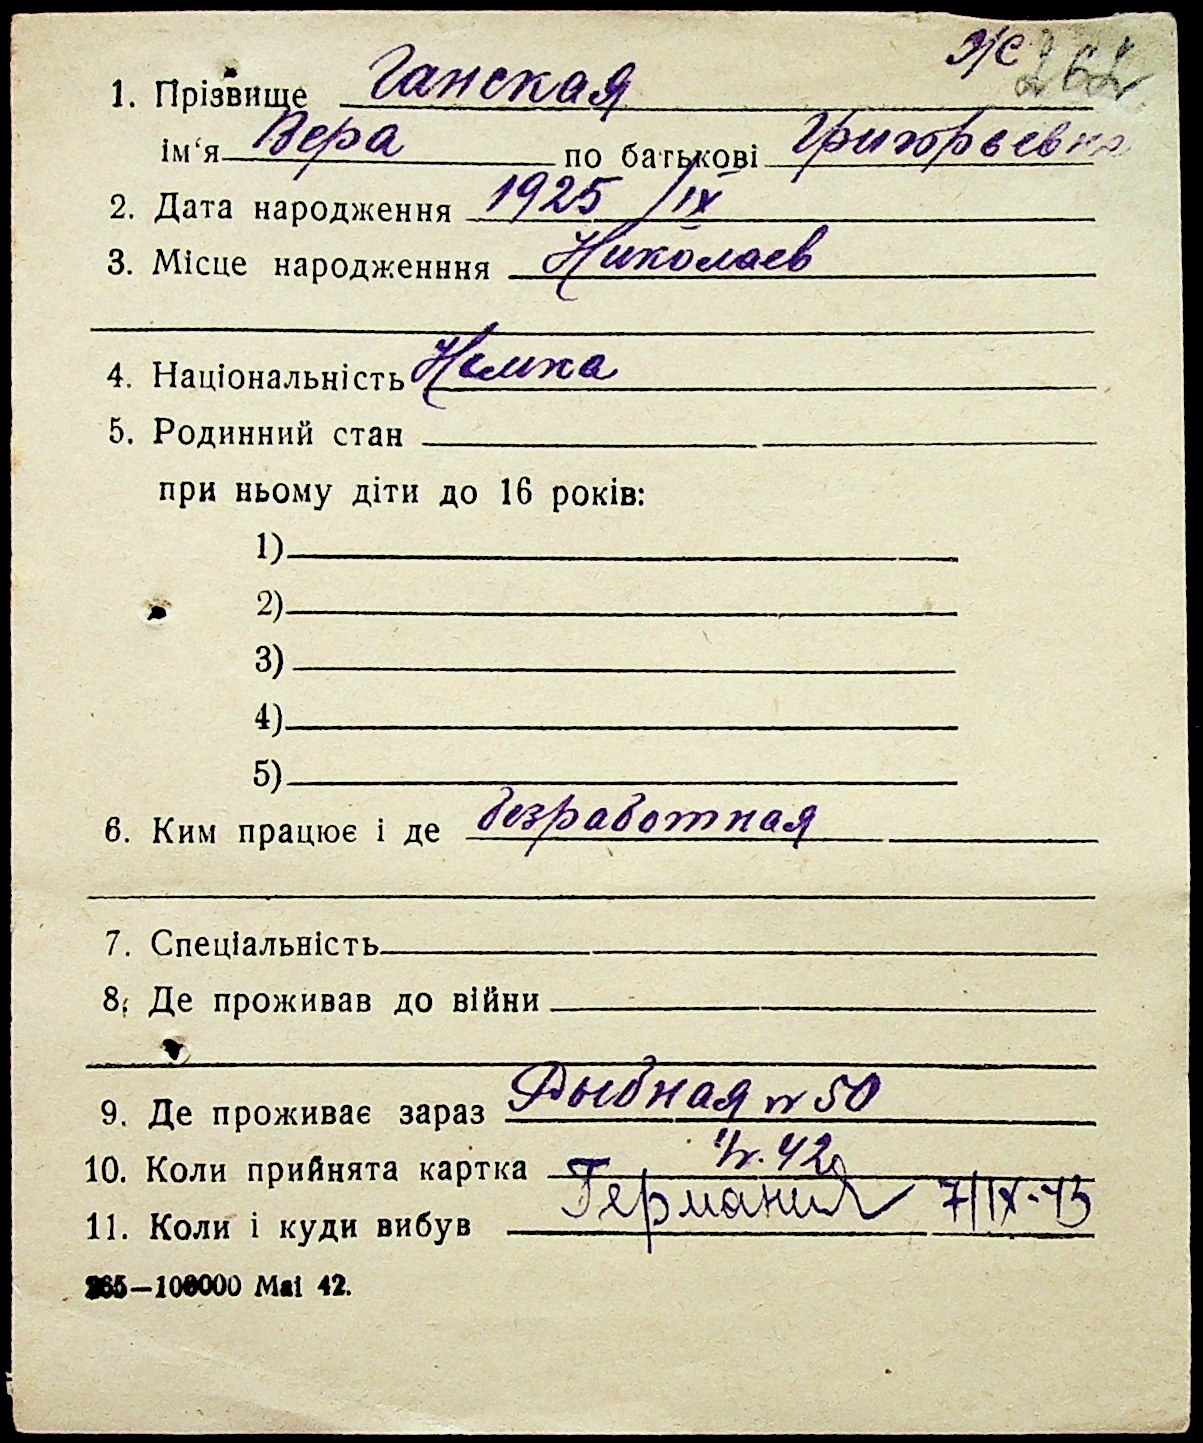 Э/с 262
1. Прізвище Ганская
ім‘я Вера по батькові Григорьевна
2. Дата народження 1925 /IX
3. Місце народженння Николаев
4. Національність Немка
5. Родинний стан
при ньому діти до 16 років:
1)
2)
3)
4)
5)
6. Ким працює і де безработная
7. Спеціальність
8. Де проживав до війни
9. Де проживає зараз Рыбная № 50
10. Коли прийнята картка 42
11. Коли і куди вибув Германия 7/IX-43
265—100000 Маі 42.